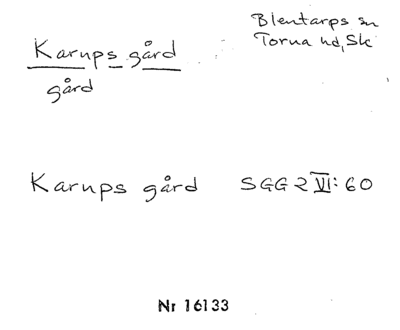 Karups gård
Blentarps sn
Torna hd, Sk
gård
Karups gård SGG 2 VI: 60
Nr 16133